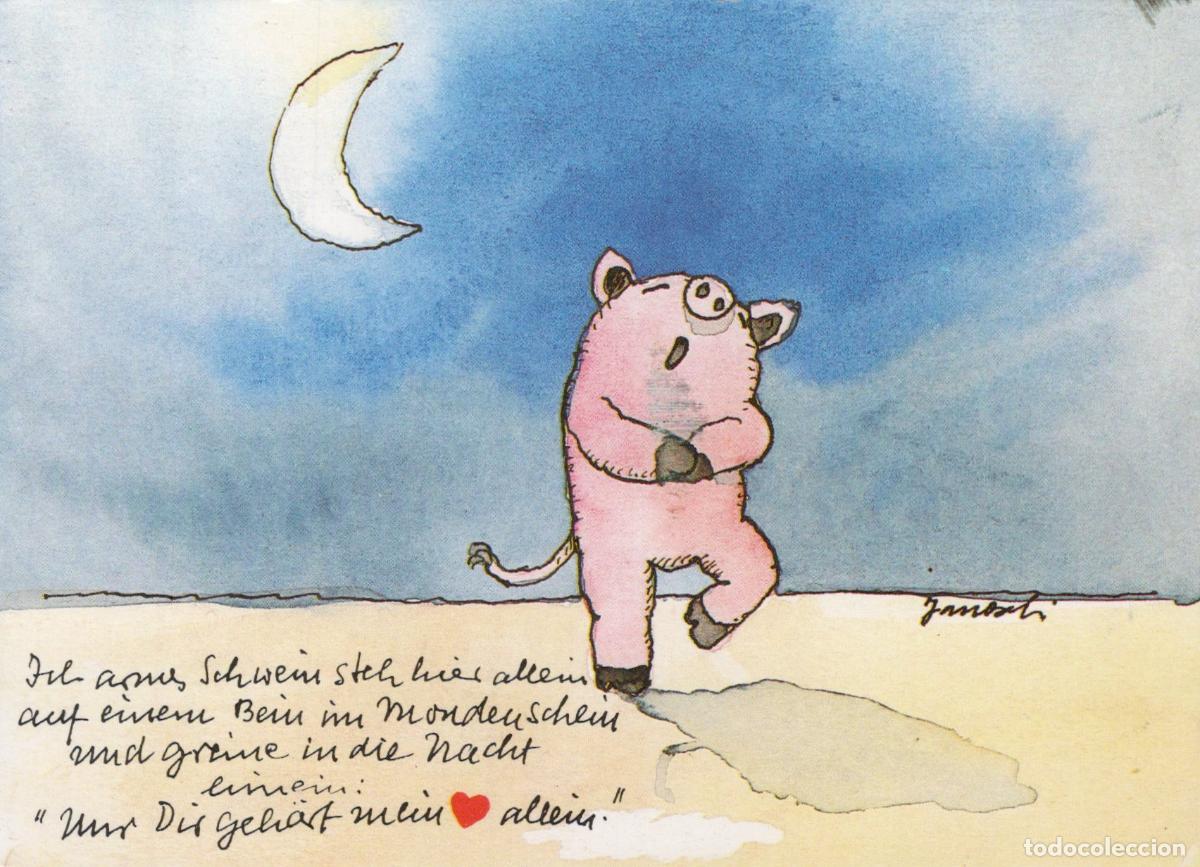 Janosch
Ich armes Schwein steh hier allein
auf einem Bein im Mondenschein
und greine in die Nacht
hinein:
"Nur Dir gehört mein ❤ allein."
todocoleccion